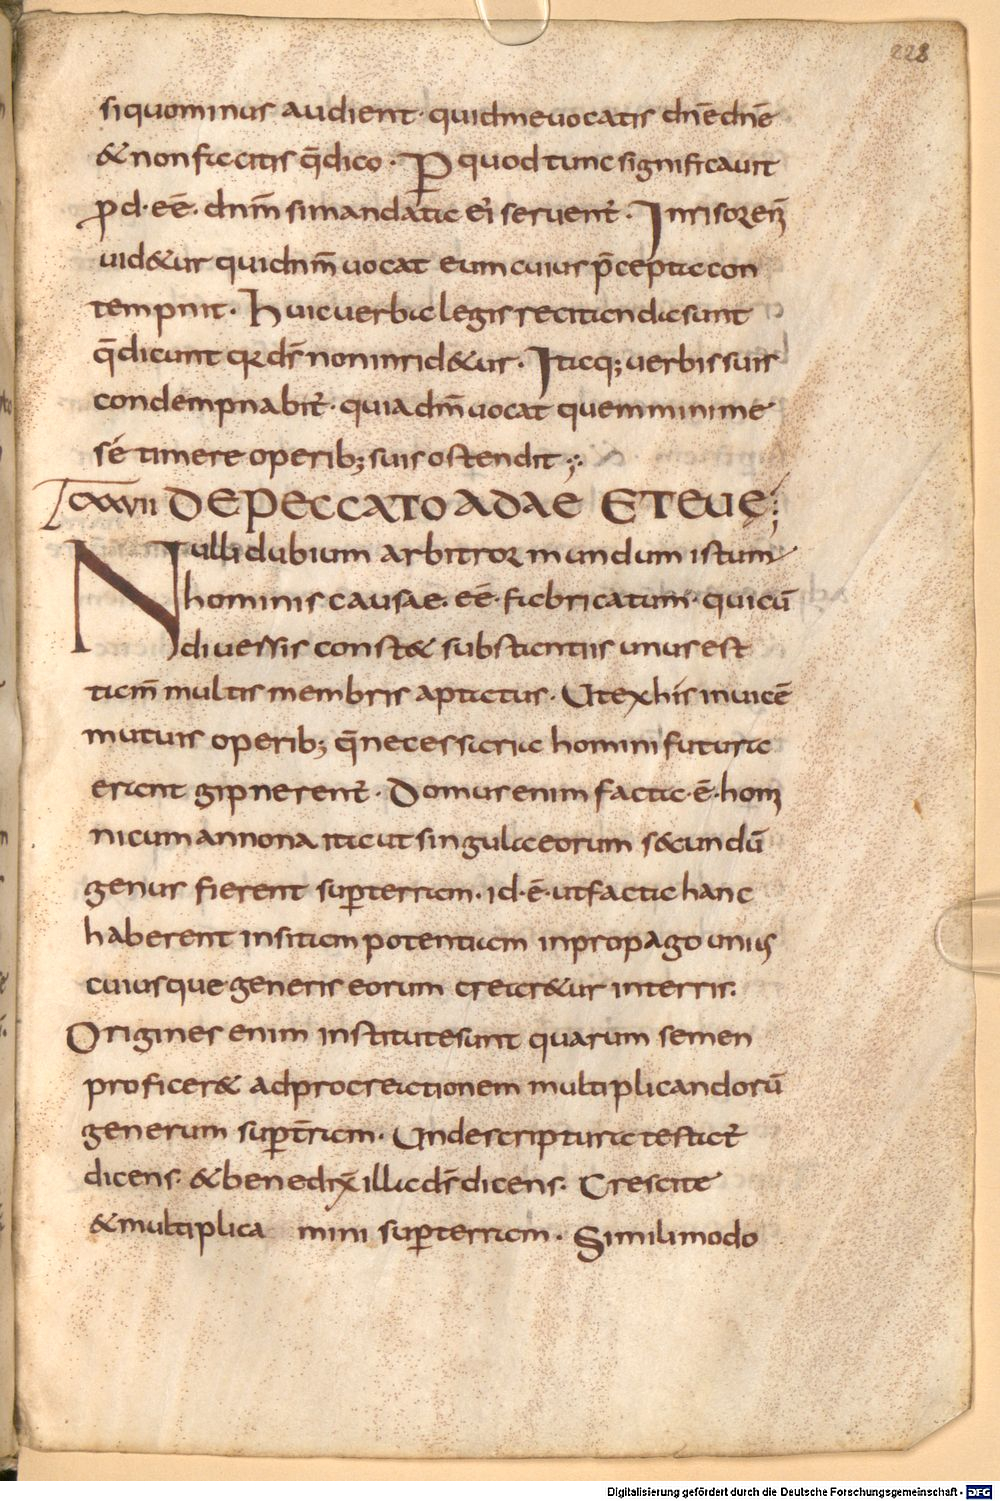 228
siquominus audient· quidmeuocatis dn̄edn̄e
&nonfacitis q̄dico· P quod tunc significauit
ꝓd·eē· dn̄m simandata ei seruent̄· Inrisorem̄
uid&ur quidn̄m uocat eum cuius p̄cepta con
tempnit· huic uerba legis recitanda sunt
q̄dicunt qr ds̄ non inrid&ur· Itaq; uerbis suis
condempnabit̄· quia dn̄m uocat quem minime
sé timere operib; suis ostendit
CXXVII DE PECCATO ADAE ET EUE;
Nulli dubium arbitror mundum istum
hominis causae· eē· fabricatum· quicū
diuersis const& substantiis unus est
tam̄ multis membris aptatus· Ut ex his inuicē
mutuis operib; q̄ necessaria homini futura
erant gignerent̄· Domus enim facta· ē· hom̄
nicum annona ita ut singula eorum s&cundū
genus fierent sup̱ terram· id·ē· ut facta hanc
haberent insitam potentiam inpropago unius
cuiusque generis eorum crear&ur in terris.
Origines enim institute sunt quarum semen
proficer& ad procreationem multiplicandorū
generum sup̱ t̄ram· Unde scriptura testat̄
dicens· &benedix̄ illa ds̄ dicens· Crescite
&multiplica mini sup̱ terram· Simili modo
Digitalisierung gefördert durch die Deutsche Forschungsgemeinschaft - DFG